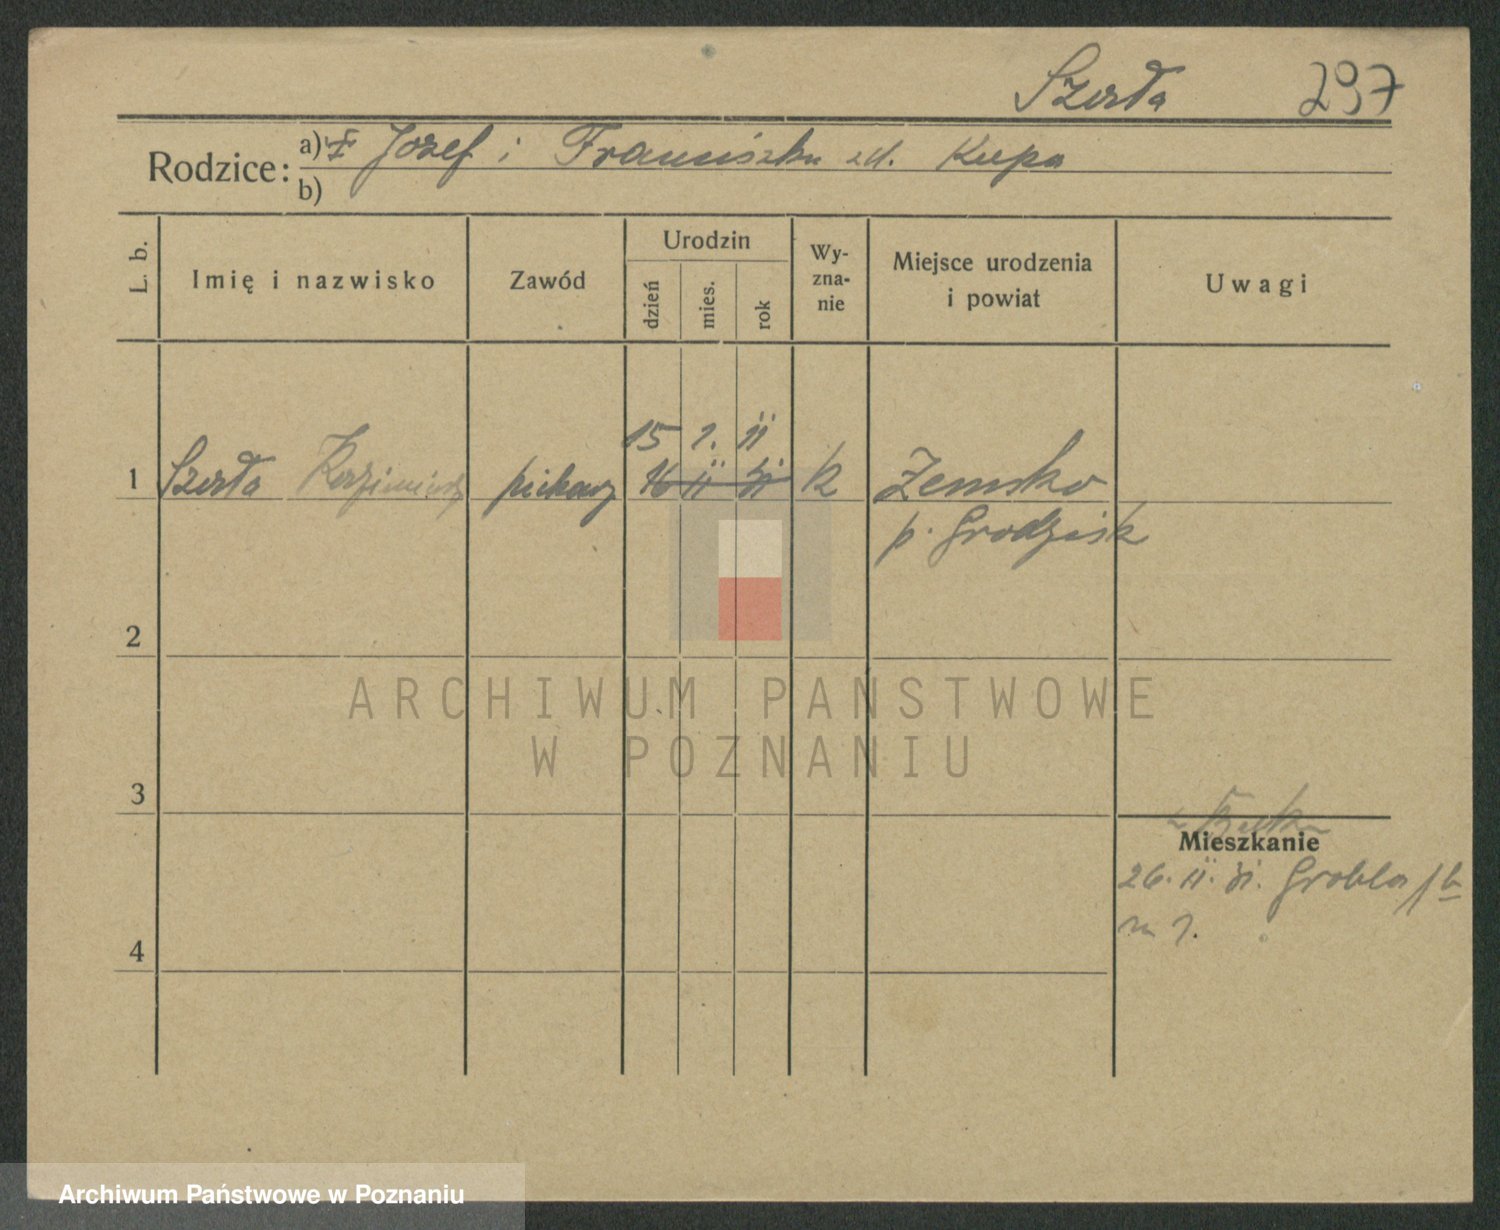 Szerła 297
Rodzice: a) Józef i Franciszka zd. Kupa
b)
L. b. Imię i nazwisko Zawód Urodzin dzień mies. rok Wy-zna-nie Miejsce urodzenia i powiat Uwagi
15 7. 11
1 Szerła Kazimierz piekarz 16 11 31 k Zemsko
p. Grodzisk
2
ARCHIWUM PAŃSTWOWE
W POZNANIU
3
Mieszkanie
26. 11. 31. Grobla
m 7.
4
Archiwum Państwowe w Poznaniu